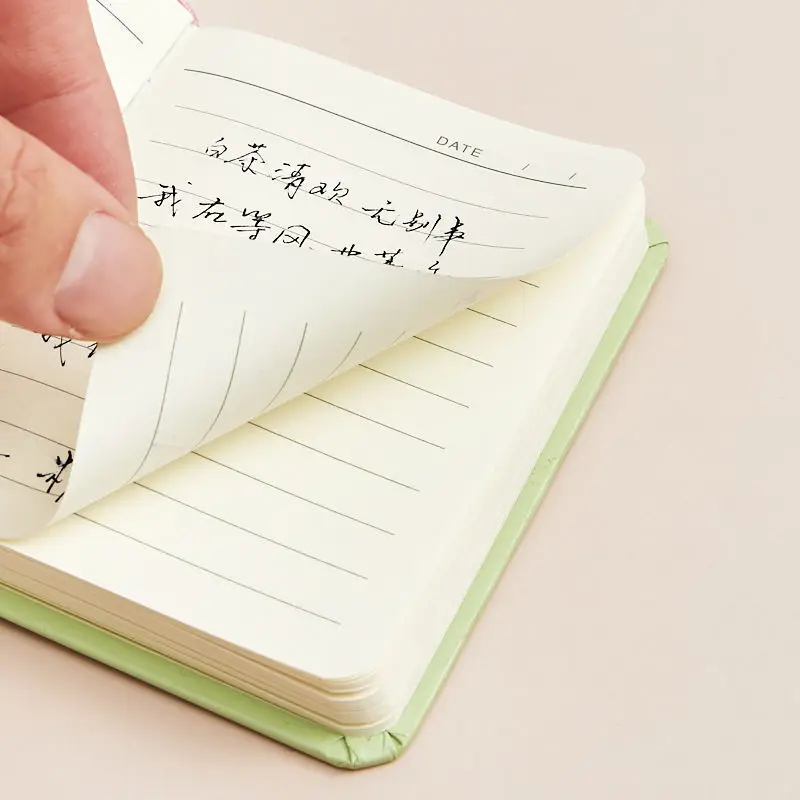 DATE / /
白茶清欢 无别事
我在等风 也